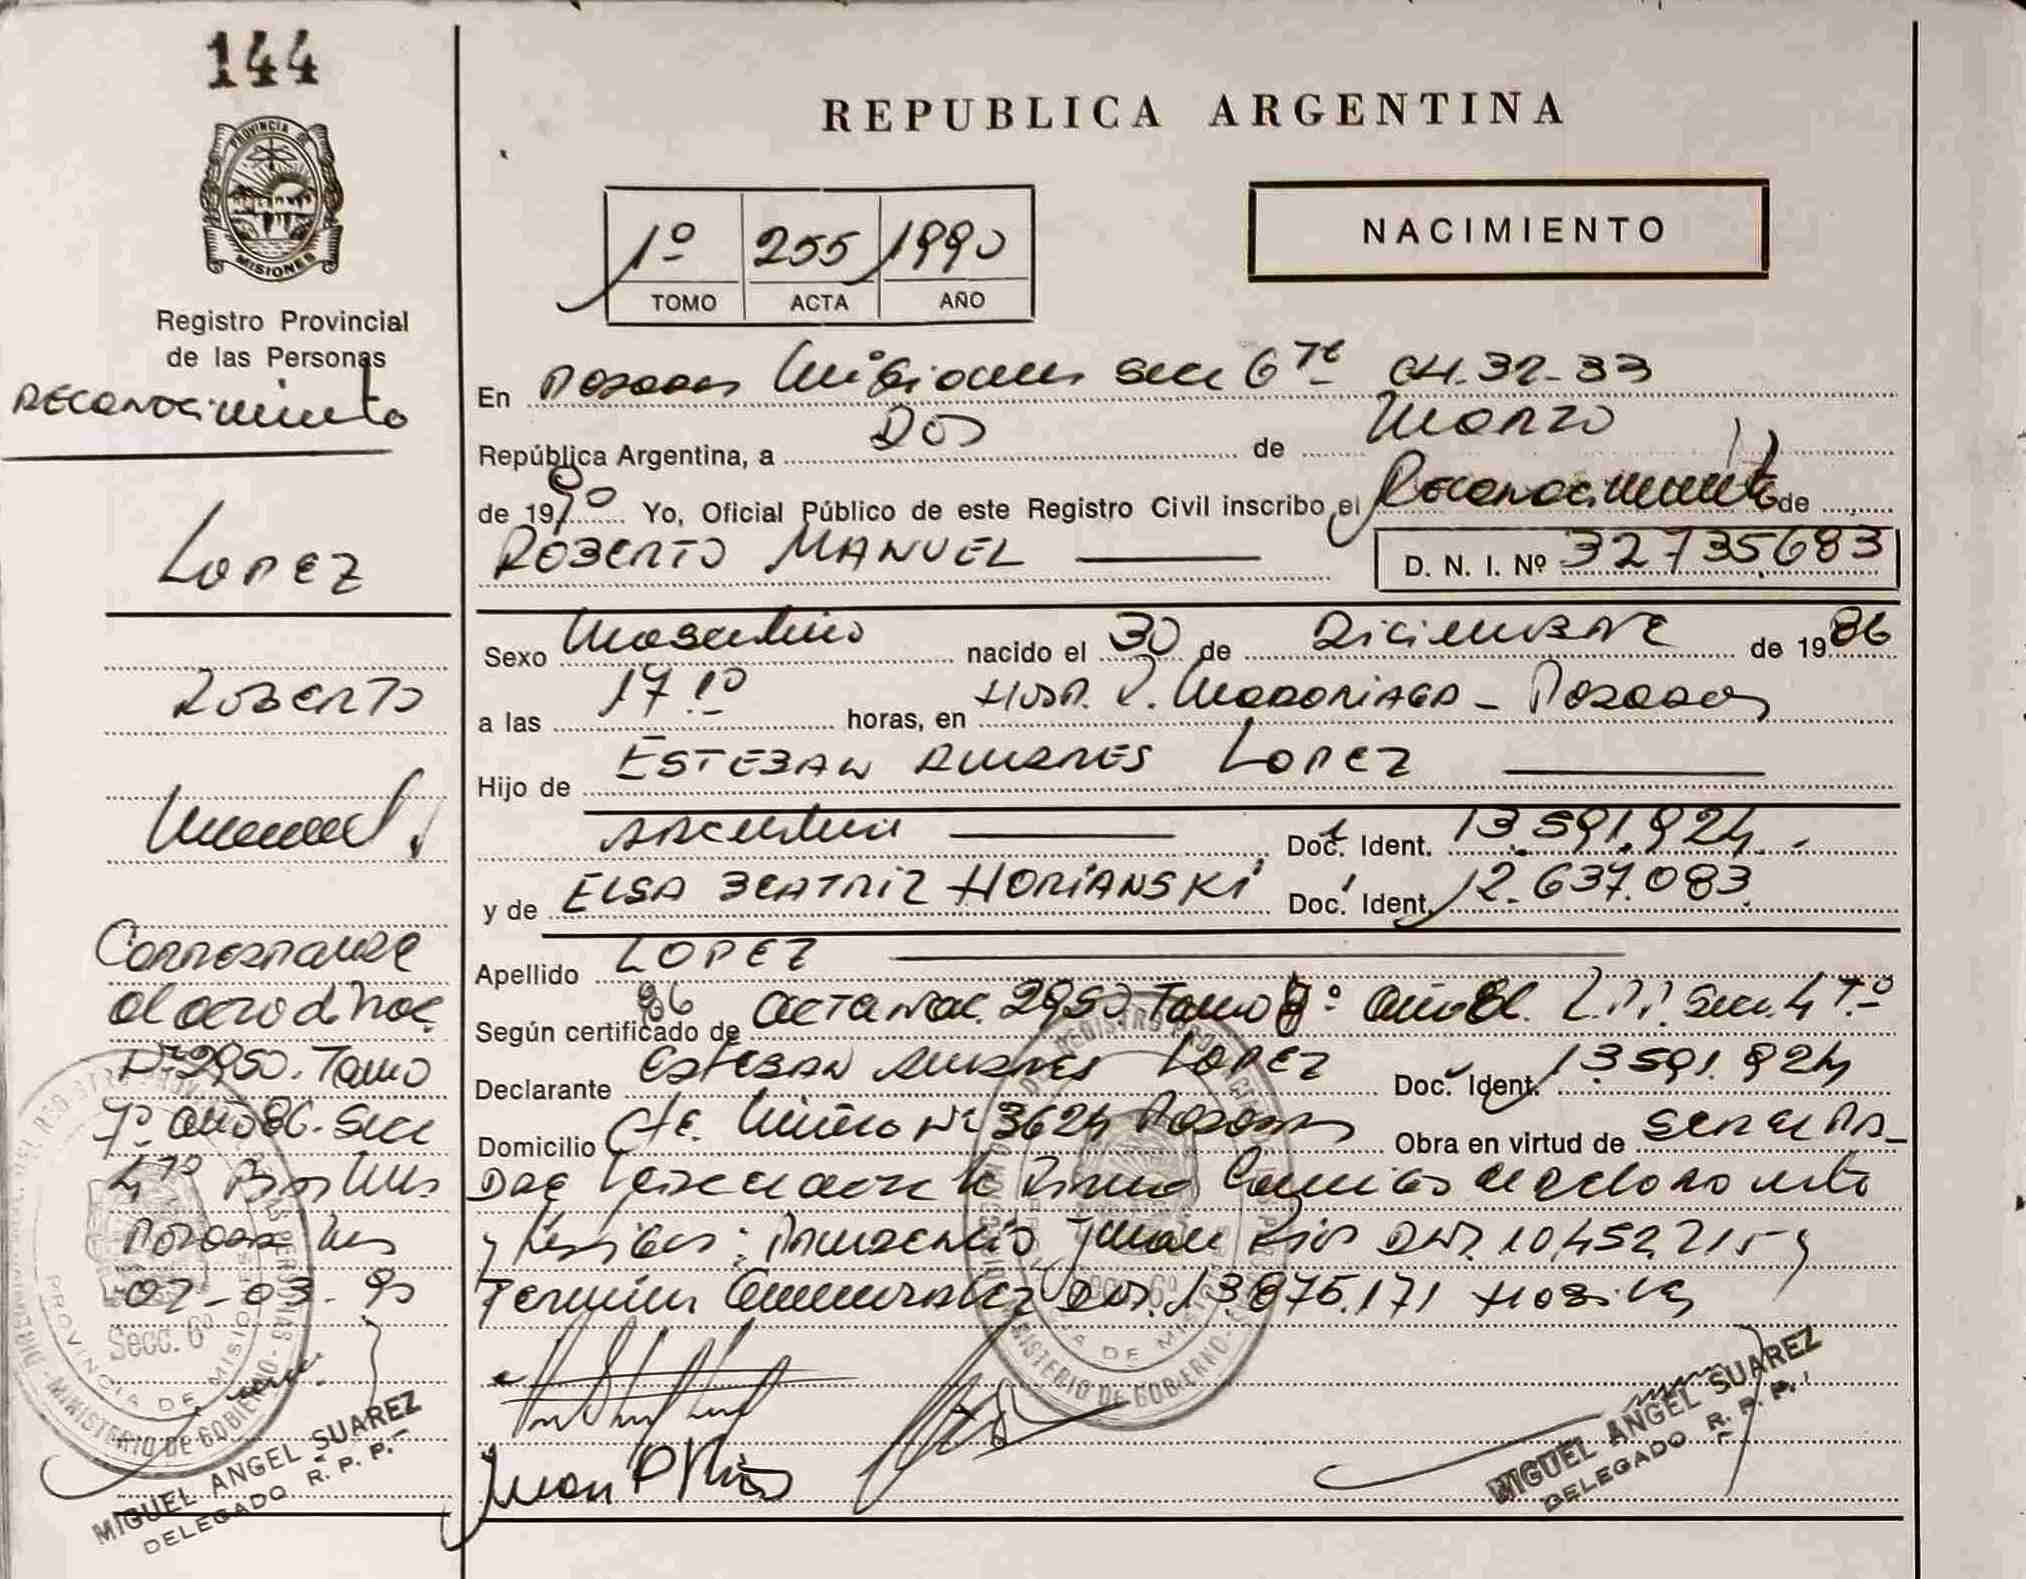 144
PROVINCIA D
MISIONES
Registro Provincial
de las Personas
RECONOCIMIENTO
LOPEZ
ROBERTO
Manuel.
Corresponde
al acta d Nac.
Nº 2950. Tomo
7º año 86. Secc
4ta Pos Mnes
Posadas Mnes
02-03-90
Secc. 6º
PROVINCIA DE MISIONES
MINISTERIO DE GOBIERNO
MIGUEL ANGEL SUAREZ
DELEGADO R. P. P.
REPUBLICA ARGENTINA
NACIMIENTO
1º 255 1990
TOMO ACTA AÑO
En Posadas Misiones Secc 6ta 04.32-33
República Argentina, a DOS de Marzo
de 1990 Yo, Oficial Público de este Registro Civil inscribo el Reconocimiento de
ROBERTO MANUEL D. N. I. Nº 32735683
Sexo Masculino nacido el 30 de Diciembre de 1986
a las 17.10 horas, en Hosp. R. Madariaga - Posadas
Hijo de ESTEBAN ANDRES LOPEZ
Argentino Doc. Ident. 13.591.924
y de ELSA BEATRIZ HORIANSKI Doc. Ident. 12.637.083
Apellido LOPEZ
Según certificado de acta Nac. 2950. Tomo º año 86 Secc. 4ta
Declarante ESTEBAN ANDRES LOPEZ Doc. Ident. 13.591.924
Domicilio Cte. Miño Nº 3624 Posadas Obra en virtud de
declarante
y testigos: Juan Rios DNI. 10.452.215 y
Fermin DNI. 13.875.171
Juan P Rios
MINISTERIO DE GOBIERNO
MIGUEL ANGEL SUAREZ
DELEGADO R. P. P.